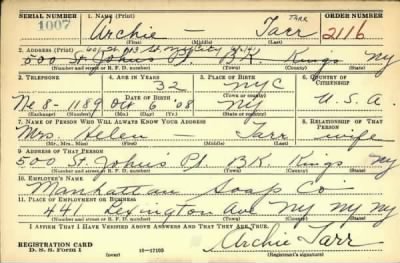 SERIAL NUMBER 1. NAME (Print) ORDER NUMBER
TARR
1007 Archie — Tarr 2116
(First) (Middle) (Last)
2. ADDRESS (Print)
500 St. Johns Pl. BK. Kings NY
(Number and street or R. F. D. number) (Town) (County) (State)
3. TELEPHONE 4. AGE IN YEARS 5. PLACE OF BIRTH 6. COUNTRY OF CITIZENSHIP
32 NYC
DATE OF BIRTH (Town or county)
Ne 8-1189 Oct 6 '08 NY U.S.A.
(Exchange) (Number) (Mo.) (Day) (Yr.) (State or country)
7. NAME OF PERSON WHO WILL ALWAYS KNOW YOUR ADDRESS 8. RELATIONSHIP OF THAT PERSON
Mrs. Helen Tarr wife
(Mr., Mrs., Miss) (First) (Middle) (Last)
9. ADDRESS OF THAT PERSON
500 St. John's Pl. BK. Kings NY
(Number and street or R. F. D. number) (Town) (County) (State)
10. EMPLOYER'S NAME
Manhattan Soap Co
11. PLACE OF EMPLOYMENT OR BUSINESS
441 Lexington Ave NY NY NY
(Number and street or R. F. D. number) (Town) (County) (State)
I AFFIRM THAT I HAVE VERIFIED ABOVE ANSWERS AND THAT THEY ARE TRUE.
Archie Tarr
REGISTRATION CARD
D. S. S. Form 1 (over) 16-17105 (Registrant's signature)